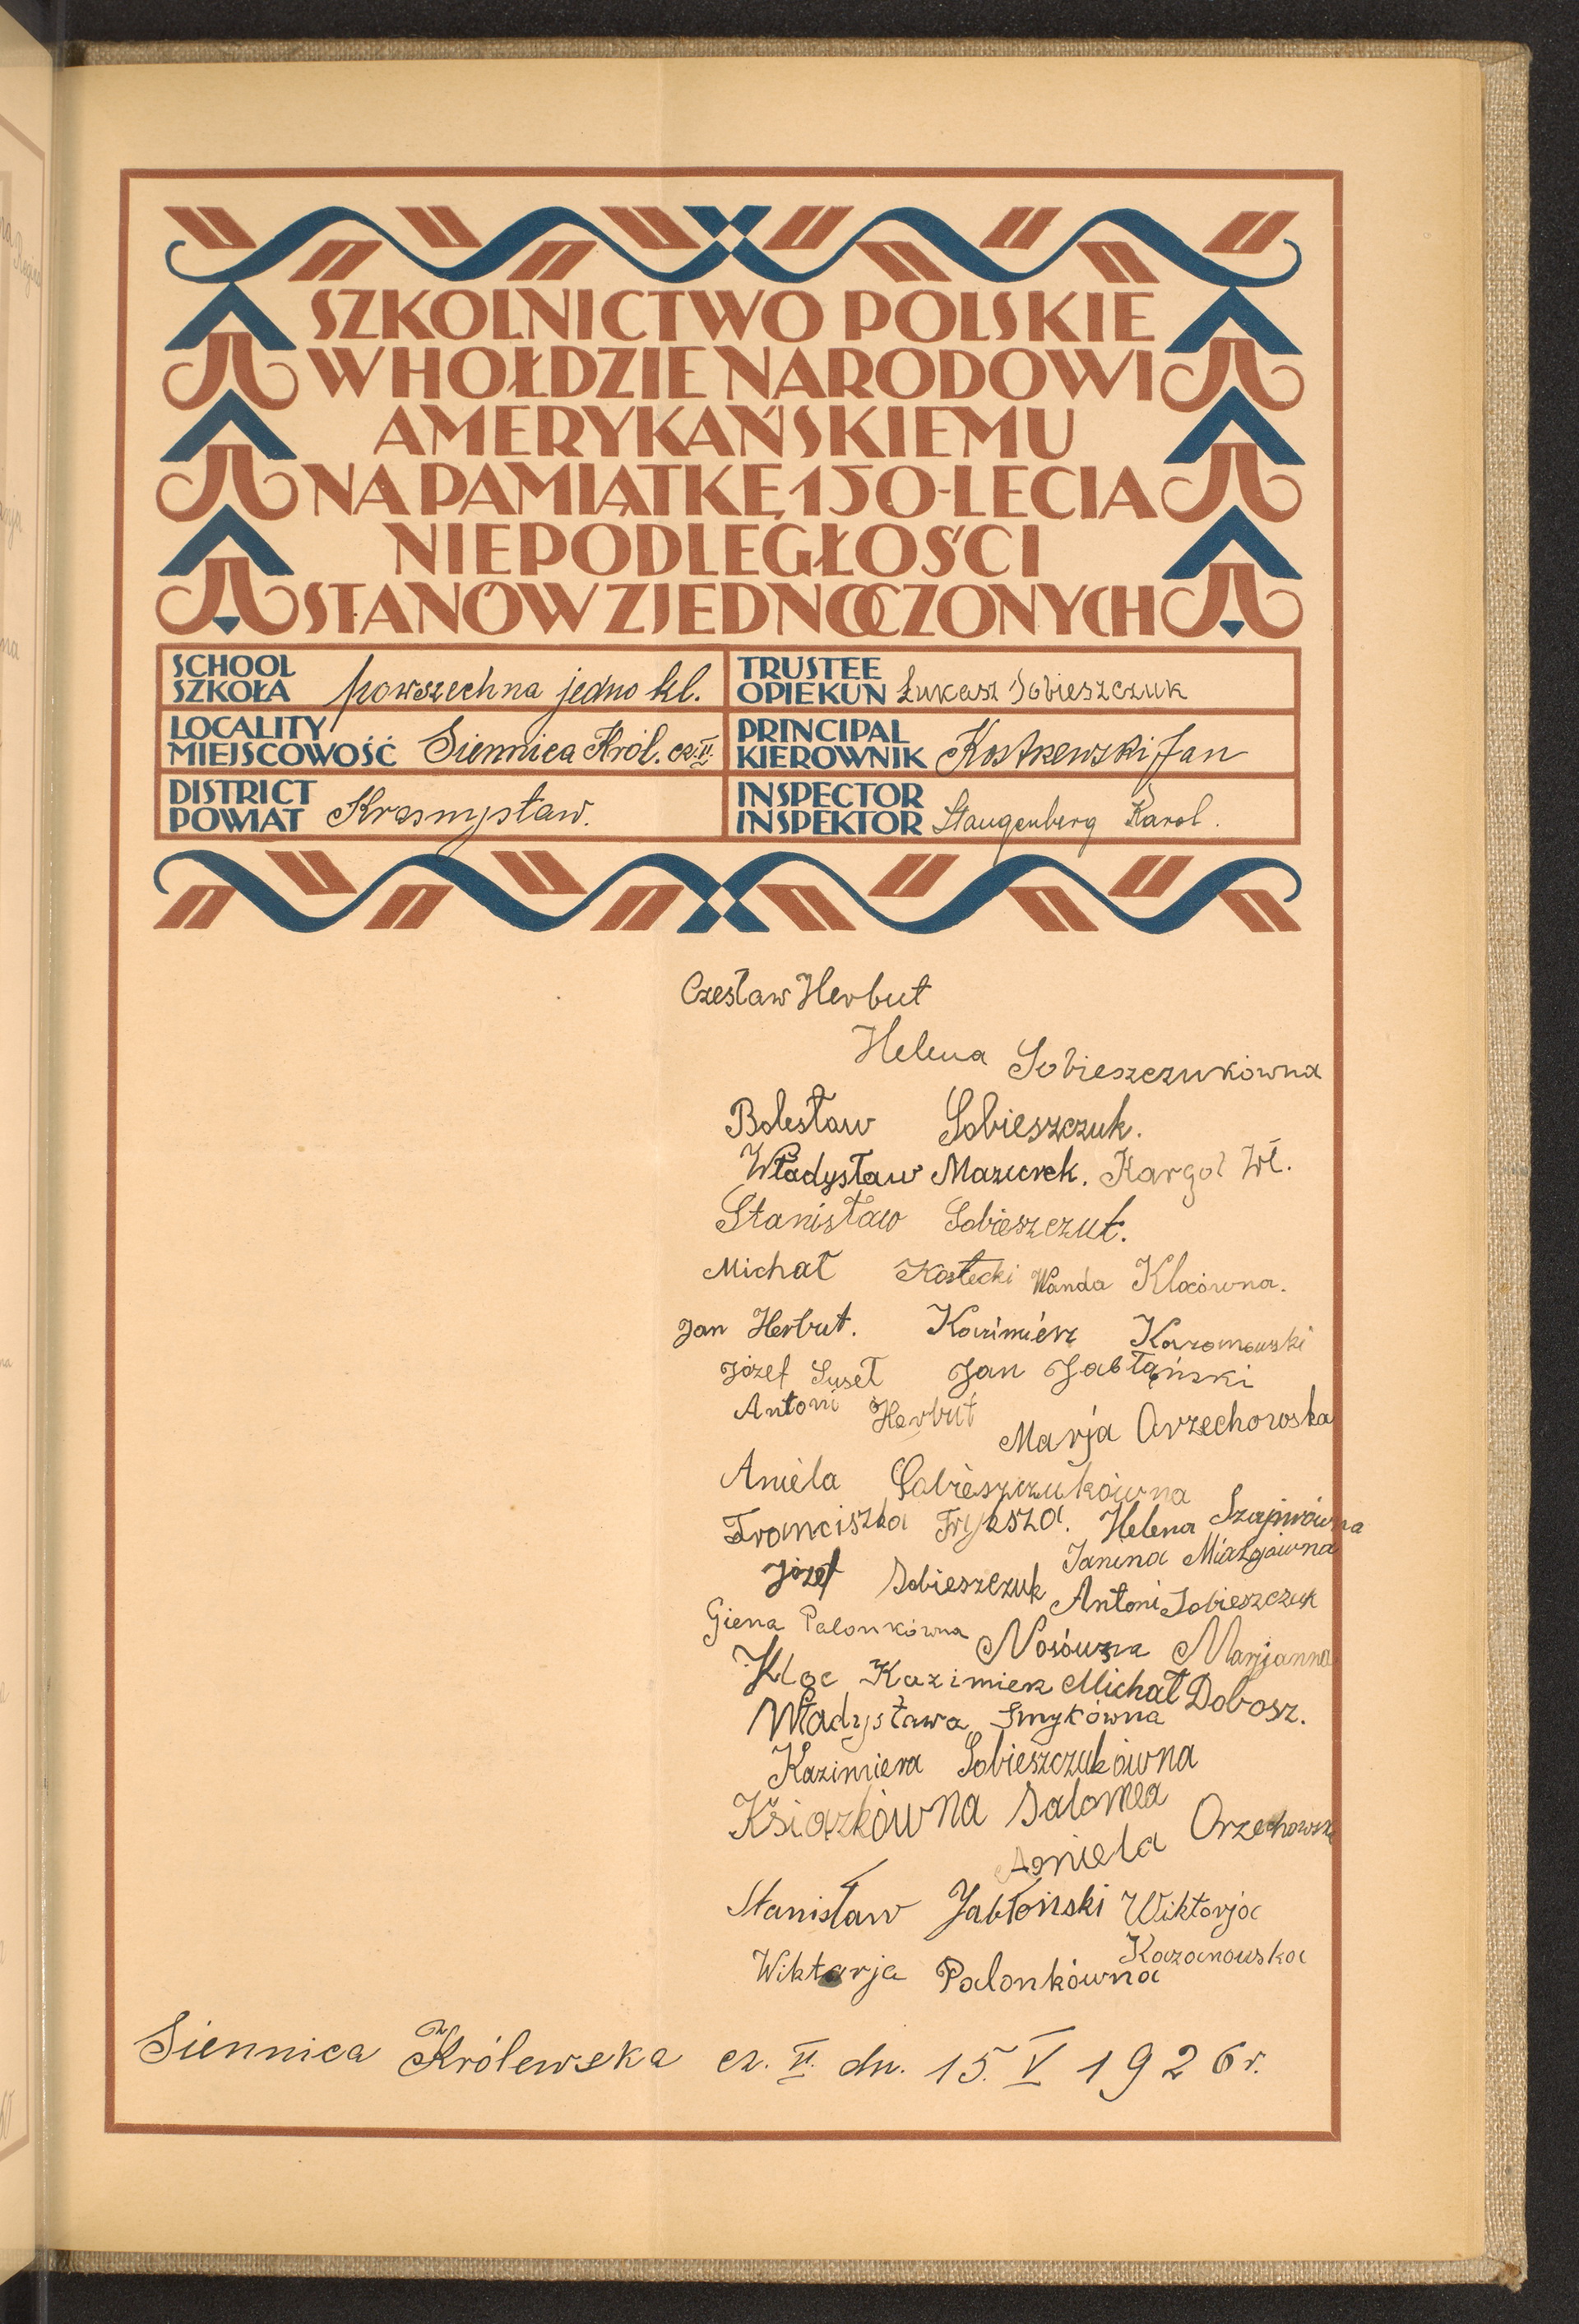 SZKOLNICTWO POLSKIE
W HOŁDZIE NARODOWI
AMERYKAŃSKIEMU
NA PAMIĄTKĘ 150-LECIA
NIEPODLEGŁOŚCI
STANÓW ZJEDNOCZONYCH
SCHOOL
SZKOŁA powszechna jedno kl.
TRUSTEE
OPIEKUN Łukasz Sobieszczuk
LOCALITY
MIEJSCOWOŚĆ Siennica Król. cz. II.
PRINCIPAL
KIEROWNIK Kostrzewski Jan
DISTRICT
POWIAT Krasnystaw.
INSPECTOR
INSPEKTOR Staugenberg Karol.
Czesław Herbut
Helena Sobieszczukówna
Bolesław Sobieszczuk.
Władysław Mazurek. Kargol Wł.
Stanisław Sobieszczuk.
Michał Kostecki Wanda Klocówna.
Jan Herbut. Kazimierz Kazanowski
Józef Suseł Jan Jabłąński
Antoni Herbut
Marja Orzechowska
Aniela Sobieszczukówna
Franciszka Fryksza. Helena
Janina Miazgówna
Józef Sobieszczuk Antoni Sobieszczuk
Giena Palonkówna Nosówna Marjanna
Kloc Kazimierz Michał Dobosz.
Władysława Smykówna
Kazimiera Sobieszczukówna
Książkówna Salomea
Aniela Orzechowska
Stanisław Jabłoński Wiktorja
Kazanowska
Wiktorja Palonkówna
Siennica Królewska cz. II. dn. 15. V 1926 r.